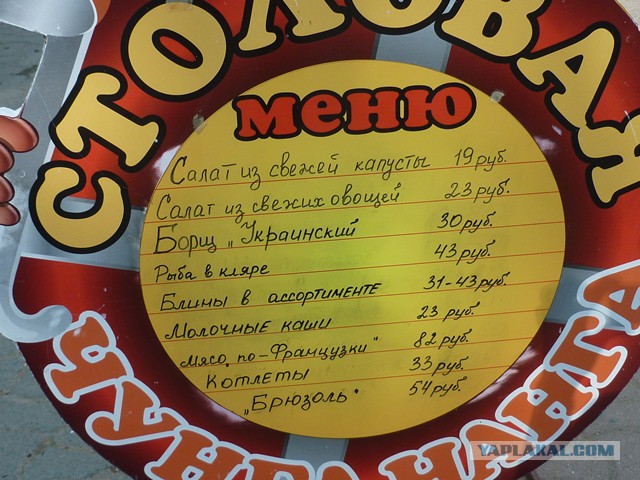 СТОЛОВАЯ
меню
Салат из свежей капусты 19 руб.
Салат из свежих овощей 23 руб.
Борщ „Украинский 30 руб.
Рыба в кляре 43 руб.
Блины в ассортименте 31-43 руб.
Молочные каши 23 руб.
мясо „по-Французки" 82 руб.
Котлеты 33 руб.
„Брюзоль" 54 руб.
ЧУНГА ЧАНГА
YAPLAKAL.COM